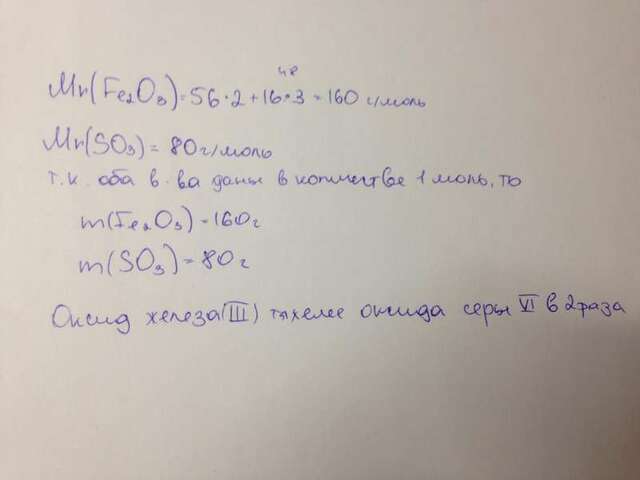 48
Mr(Fe₂O₃)=56·2+16·3=160 г/моль
Mr(SO₃)= 80г/моль
т.к. оба в-ва даны в количестве 1 моль, то
m(Fe₂O₃)=160г
m(SO₃)=80г
Оксид железа(III) тяжелее оксида серы VI в 2 раза